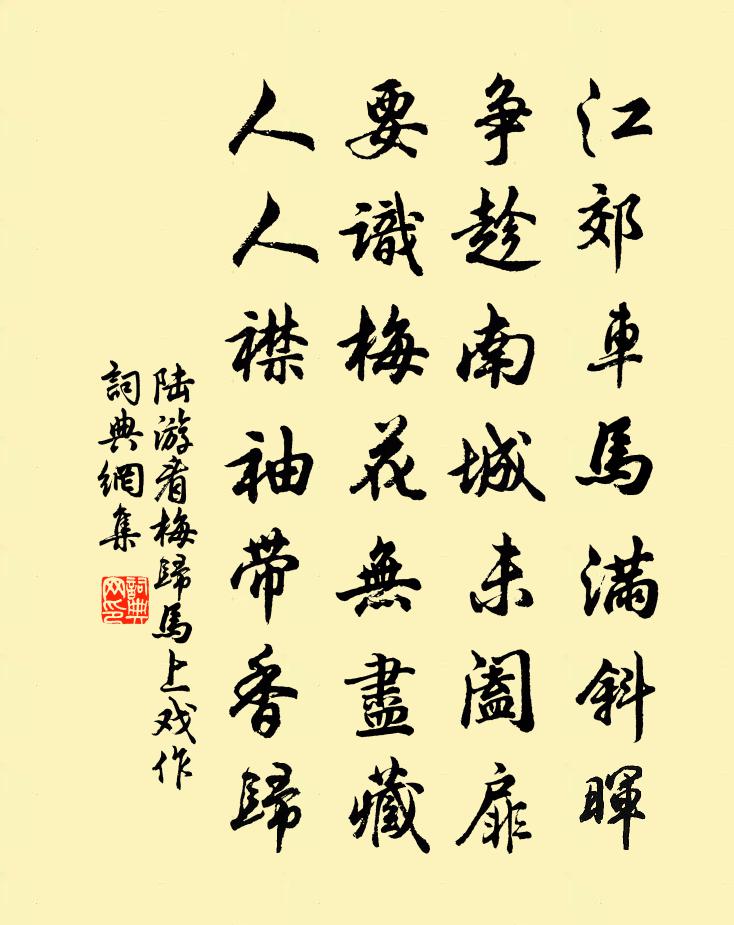 江郊車馬滿斜暉
争趁南城未闔扉
要識梅花無盡藏
人人襟袖帶香歸
陆游看梅歸馬上戏作
詞典網集
詞典網印